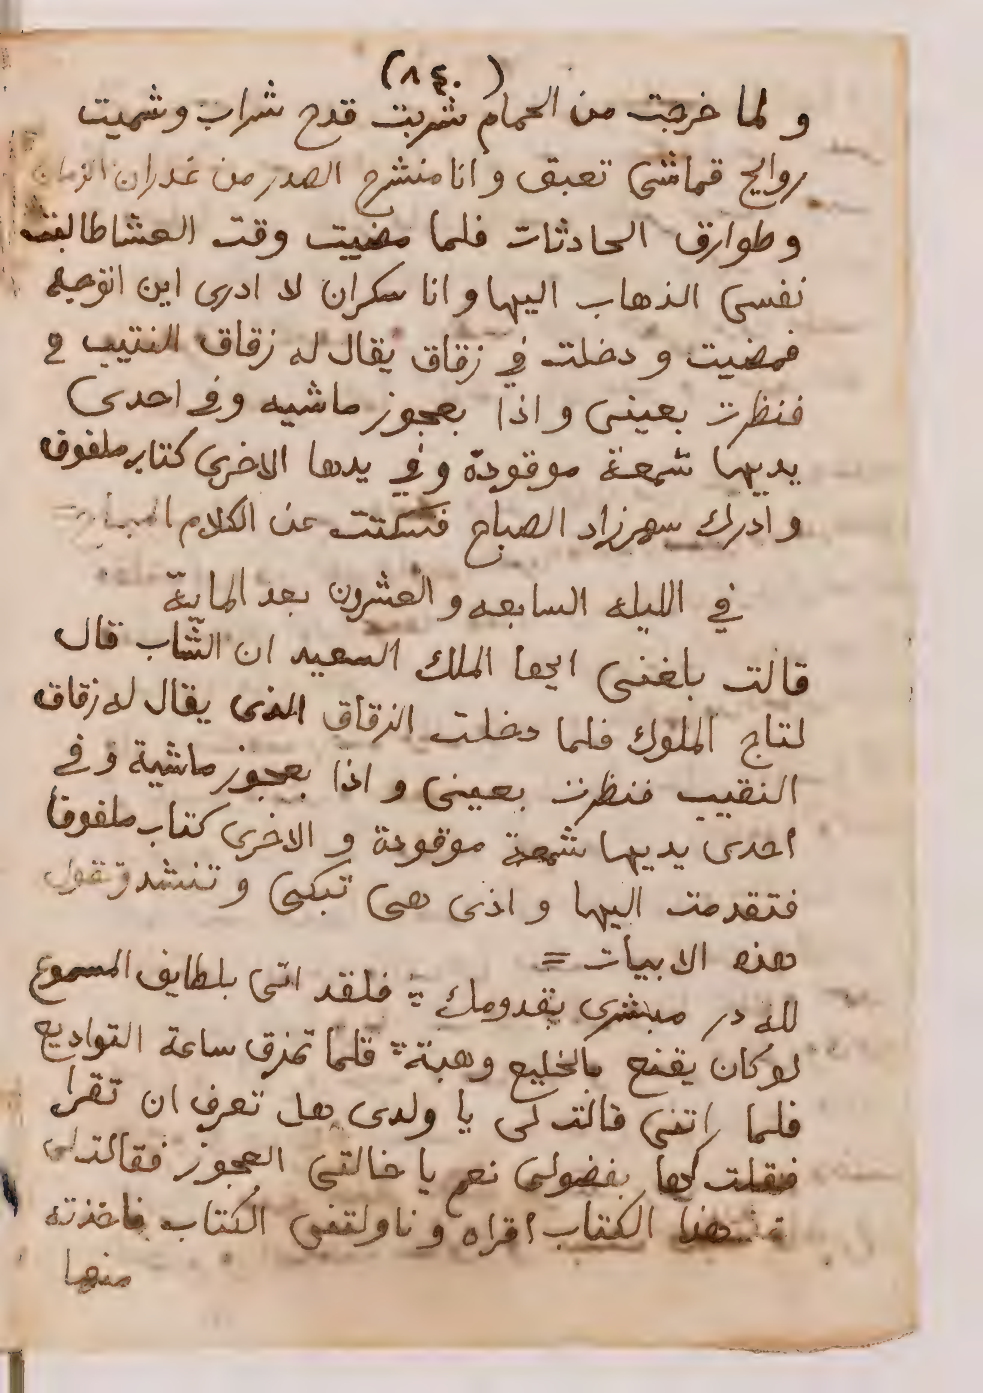 (٨٤٠)
و لما خرجت من الحمام شربت قدح شراب وشميت
روايح قماشى تعبق و انا منشرح الصدر من غدران الزمان
و طوارق الحادثات فلما مضيت وقت العشا طالبت
نفسى الذهاب اليها و انا سكران لا ادرى اين اتوجه
فمضيت و دخلت في زقاق يقال له زقاق النقيب
فنظرت بعينى و اذا بعجوز ماشيه وفي احدى
يديها شمعة موقودة وفي يدها الاخرى كتاب ملفوف
و ادرك سهرزاد الصباح فسكتت عن الكلام المباح
في الليله السابعه و العشرون بعد الماية
قالت بلغنى ايها الملك السعيد ان الشاب قال
لتاج الملوك فلما دخلت الزقاق الذى يقال له زقاق
النقيب فنظرت بعينى و اذا بعجوز ماشية وفي
احدى يديها شمعة موقودة و الاخرى كتاب ملفوفا
فتقدمت اليها و اذى هى تبكى و تنشد وتقول
هذه الابيات =
لله در مبشرى بقدومك فلقد اتى بلطايف المسموع
لو كان يقنع بالخليع وهبتة قلبا تمزق ساعة التواديع
فلما راتنى قالت لى يا ولدى هل تعرف ان تقرا
فقلت لها بفضولى نعم يا خالتى العجوز فقالت لى
هذا الكتاب اقراه و ناولتنى الكتاب فاخذته
منها